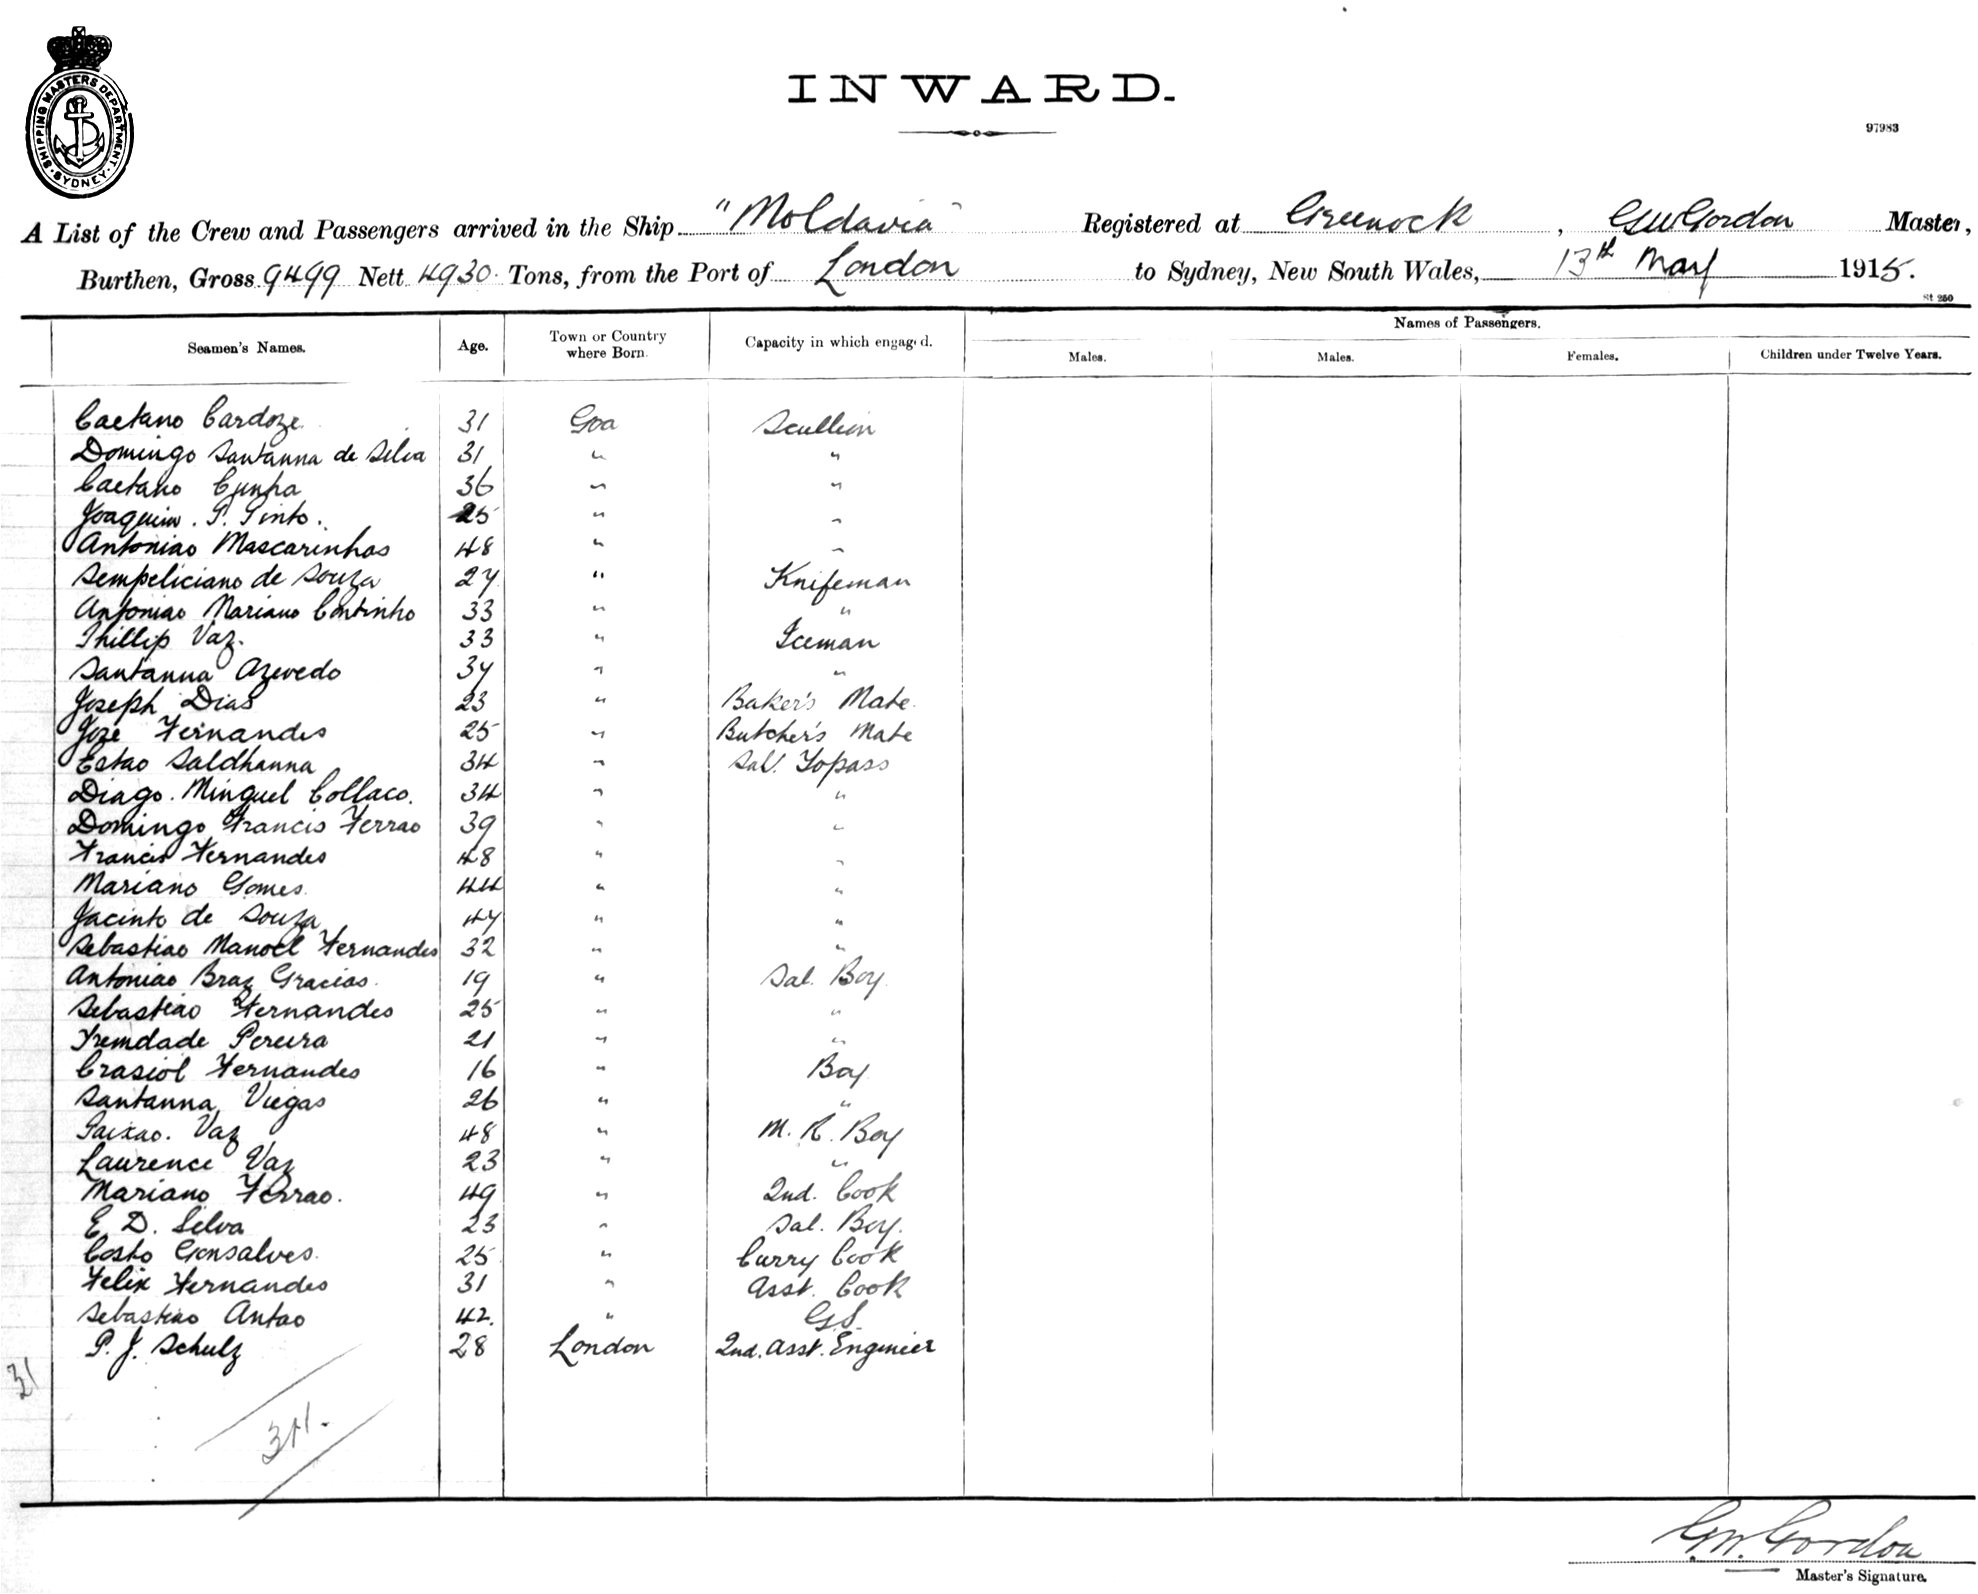 SHIPPING MASTERS DEPARTMENT. SYDNEY.
INWARD.
97983
A List of the Crew and Passengers arrived in the Ship "Moldavia" Registered at Greenock, GW Gordon Master,
Burthen, Gross 9499 Nett 4930 Tons, from the Port of London to Sydney, New South Wales, 13th May 1915.
St 250
Seamen's Names. Age. Town or Country where Born. Capacity in which engaged. Names of Passengers.
Males. Males. Females. Children under Twelve Years.
Caetano Cardoze 31 Goa Scullion
Domingo Santanna de Silva 31 " "
Caetano Cunha 36 " "
Joaquim. P. Pinto. 25 " "
Antoniao Mascarinhas 48 " "
Sempeliciano de Souza 27 " Knifeman
Antoniao Mariano Continho 33 " "
Phillip Vaz. 33 " Iceman
Santanna Azevedo 37 " "
Joseph Dias 23 " Baker's Mate
Joze Fernandes 25 " Butcher's Mate
Estao Saldhanna 34 " Sal. Topass
Diago. Minguel Collaco. 34 " "
Domingo Francis Ferrao 39 " "
Francis Fernandes 48 " "
Mariano Gomes 44 " "
Jacinto de Souza 47 " "
Sebastiao Manoel Fernandes 32 " "
Antoniao Braz Gracias 19 " Sal. Boy
Sebastiao Fernandes 25 " "
Tremdade Pereira 21 " "
Crasiol Fernandes 16 " Boy
Santanna Viegas 26 " "
Paixao. Vaz 48 " M. R. Boy
Laurence Vaz 23 " "
Mariano Ferrao. 49 " 2nd. Cook
E. D. Silva 23 " Sal. Boy.
Costo Gonsalves 25 " Curry Cook
Felix Fernandes 31 " Asst. Cook
Sebastiao Antao 42. " G.S.
P. J. Schulz 28 London 2nd. Asst. Engineer
31
G.W. Gordon
Master's Signature.